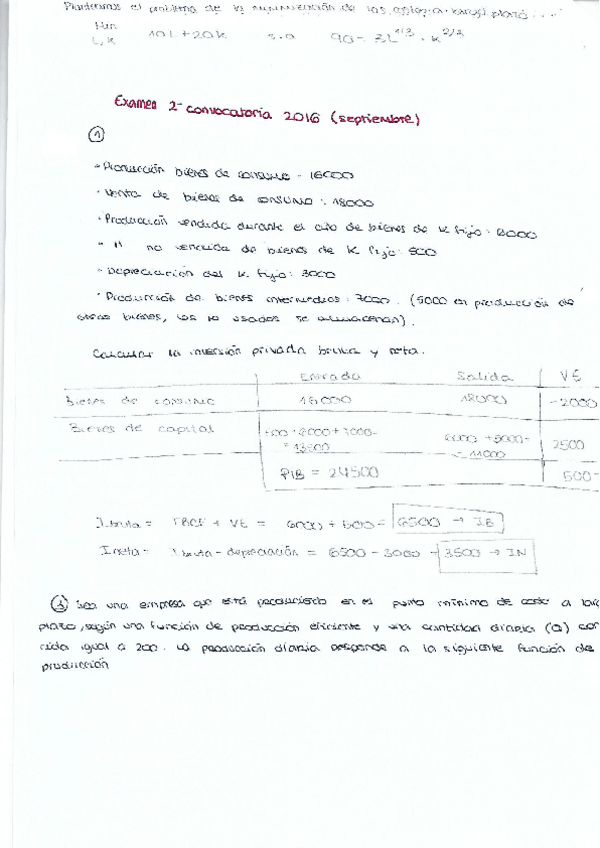 Planteamos el problema de la minimización de los costes a largo plazo....
Min
L, K 10L + 20K s.a 90 = 3L^1/3 · K^2/3
Examen 2ª convocatoria 2016 (septiembre)
1
· Producción bienes de consumo = 16000
· Venta de bienes de consumo : 18000
· Producción vendida durante el año de bienes de K fijo : 6000
· " no vendida de bienes de K fijo : 500
· Depreciación del K. fijo : 3000
· Producción de bienes intermedios : 7000. (5000 en producción de
otros bienes, los no usados se almacenan).
Calcular la inversión privada bruta y neta.
Entrada Salida VE
Bienes de consumo 16000 18000 -2000
Bienes de capital 500 + 6000 + 7000 = 13500 6000 + 5000 = 11000 2500
PIB = 24500 500
I.bruta = FBCF + VE = 6000 + 500 = 6500 → IB
I.neta = I.bruta - depreciación = 6500 - 3000 = 3500 → IN
3 Sea una empresa que está produciendo en el punto mínimo de coste a
plazo, según una función de producción eficiente y una cantidad diaria (Q)
igual a 200. La producción diaria responde a la siguiente función de
producción